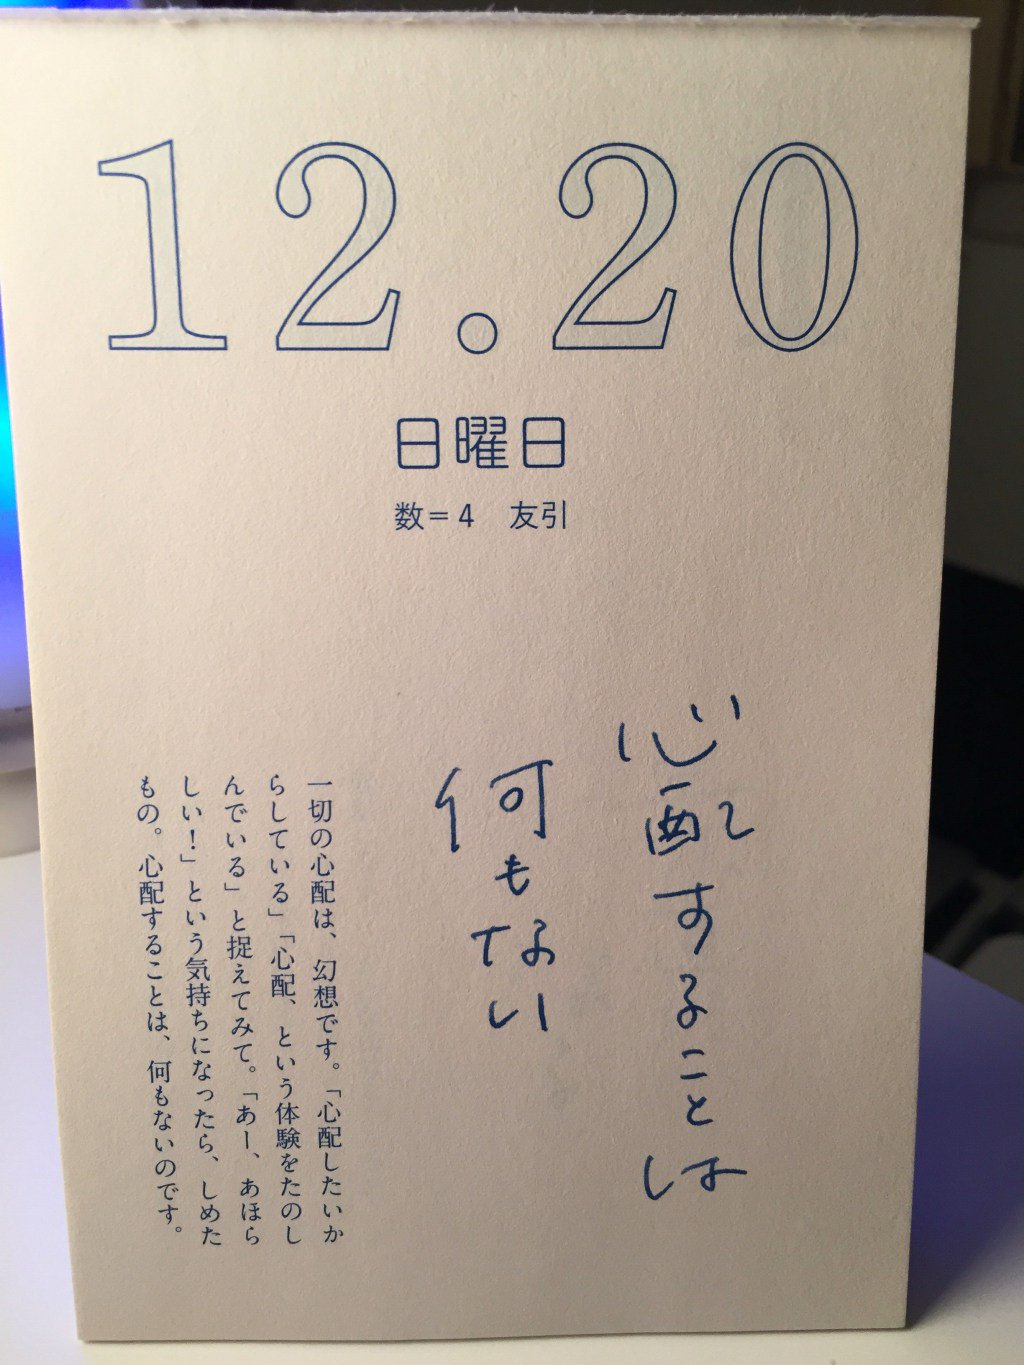 12.20
日曜日
数=4　友引
心配することは
何もない
一切の心配は、幻想です。「心配したいか
らしている」「心配、という体験をたのし
んでいる」と捉えてみて。「あー、あほら
しい！」という気持ちになったら、しめた
もの。心配することは、何もないのです。